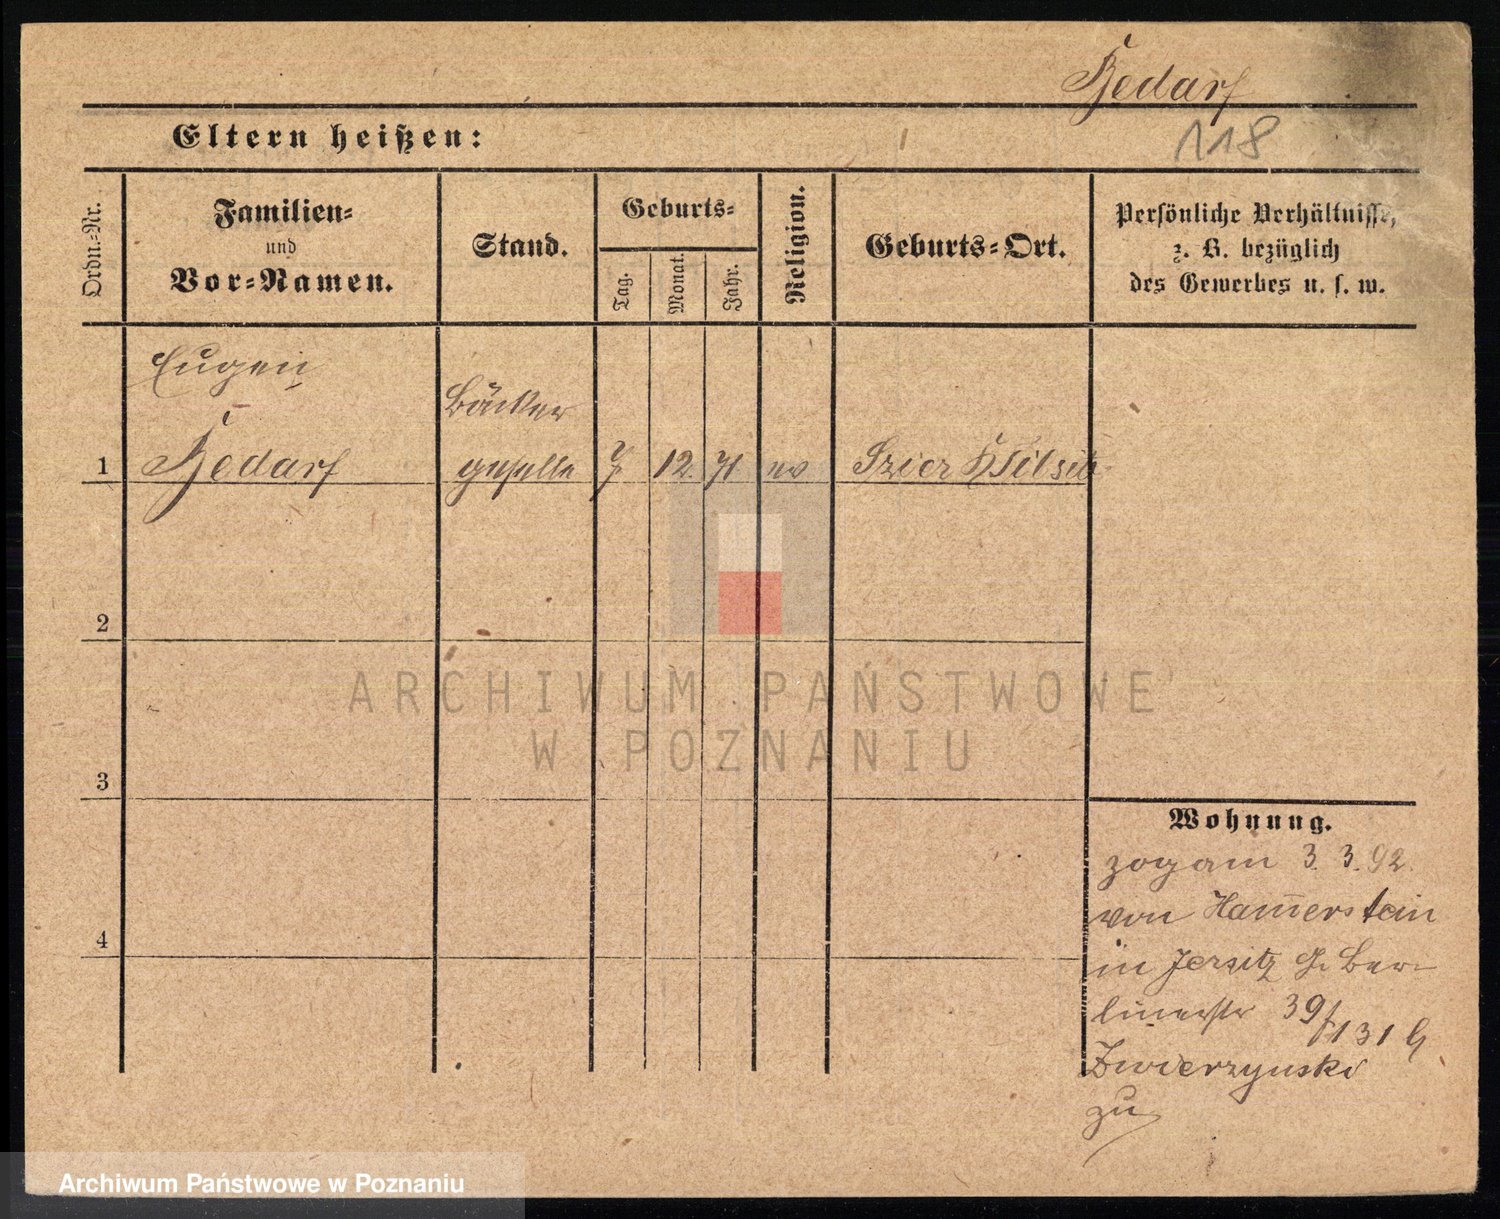 Bedarf
118
Eltern heißen:
Ordn.-Nr.
Familien-
und
Vor-Namen.
Stand.
Geburts-
Tag.
Monat.
Jahr.
Religion.
Geburts-Ort.
Persönliche Verhältnisse,
z. B. bezüglich
des Gewerbes u. s. w.
Eugen
Bäcker
1 Bedarf geselle 7. 12. 71 ev
2
3
4
ARCHIWUM PAŃSTWOWE
W POZNANIU
Wohnung.
zog am 3. 3. 92.
von Ham̄erstein
in Jersitz Gr. Ber-
linerstr 39/
131 b
Zwierzynski
zu
Archiwum Państwowe w Poznaniu